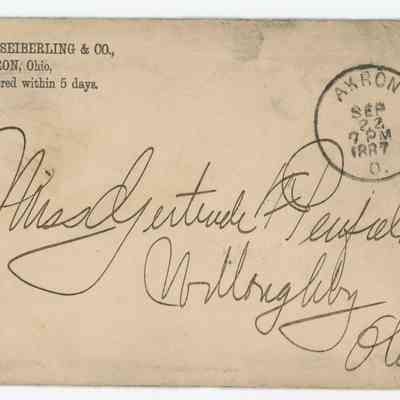 SEIBERLING & CO.,
RON, Ohio,
red within 5 days.
AKRON
SEP
22
7 PM
1887
O.
Miss Gertrude Penfiel
Willoughby
O